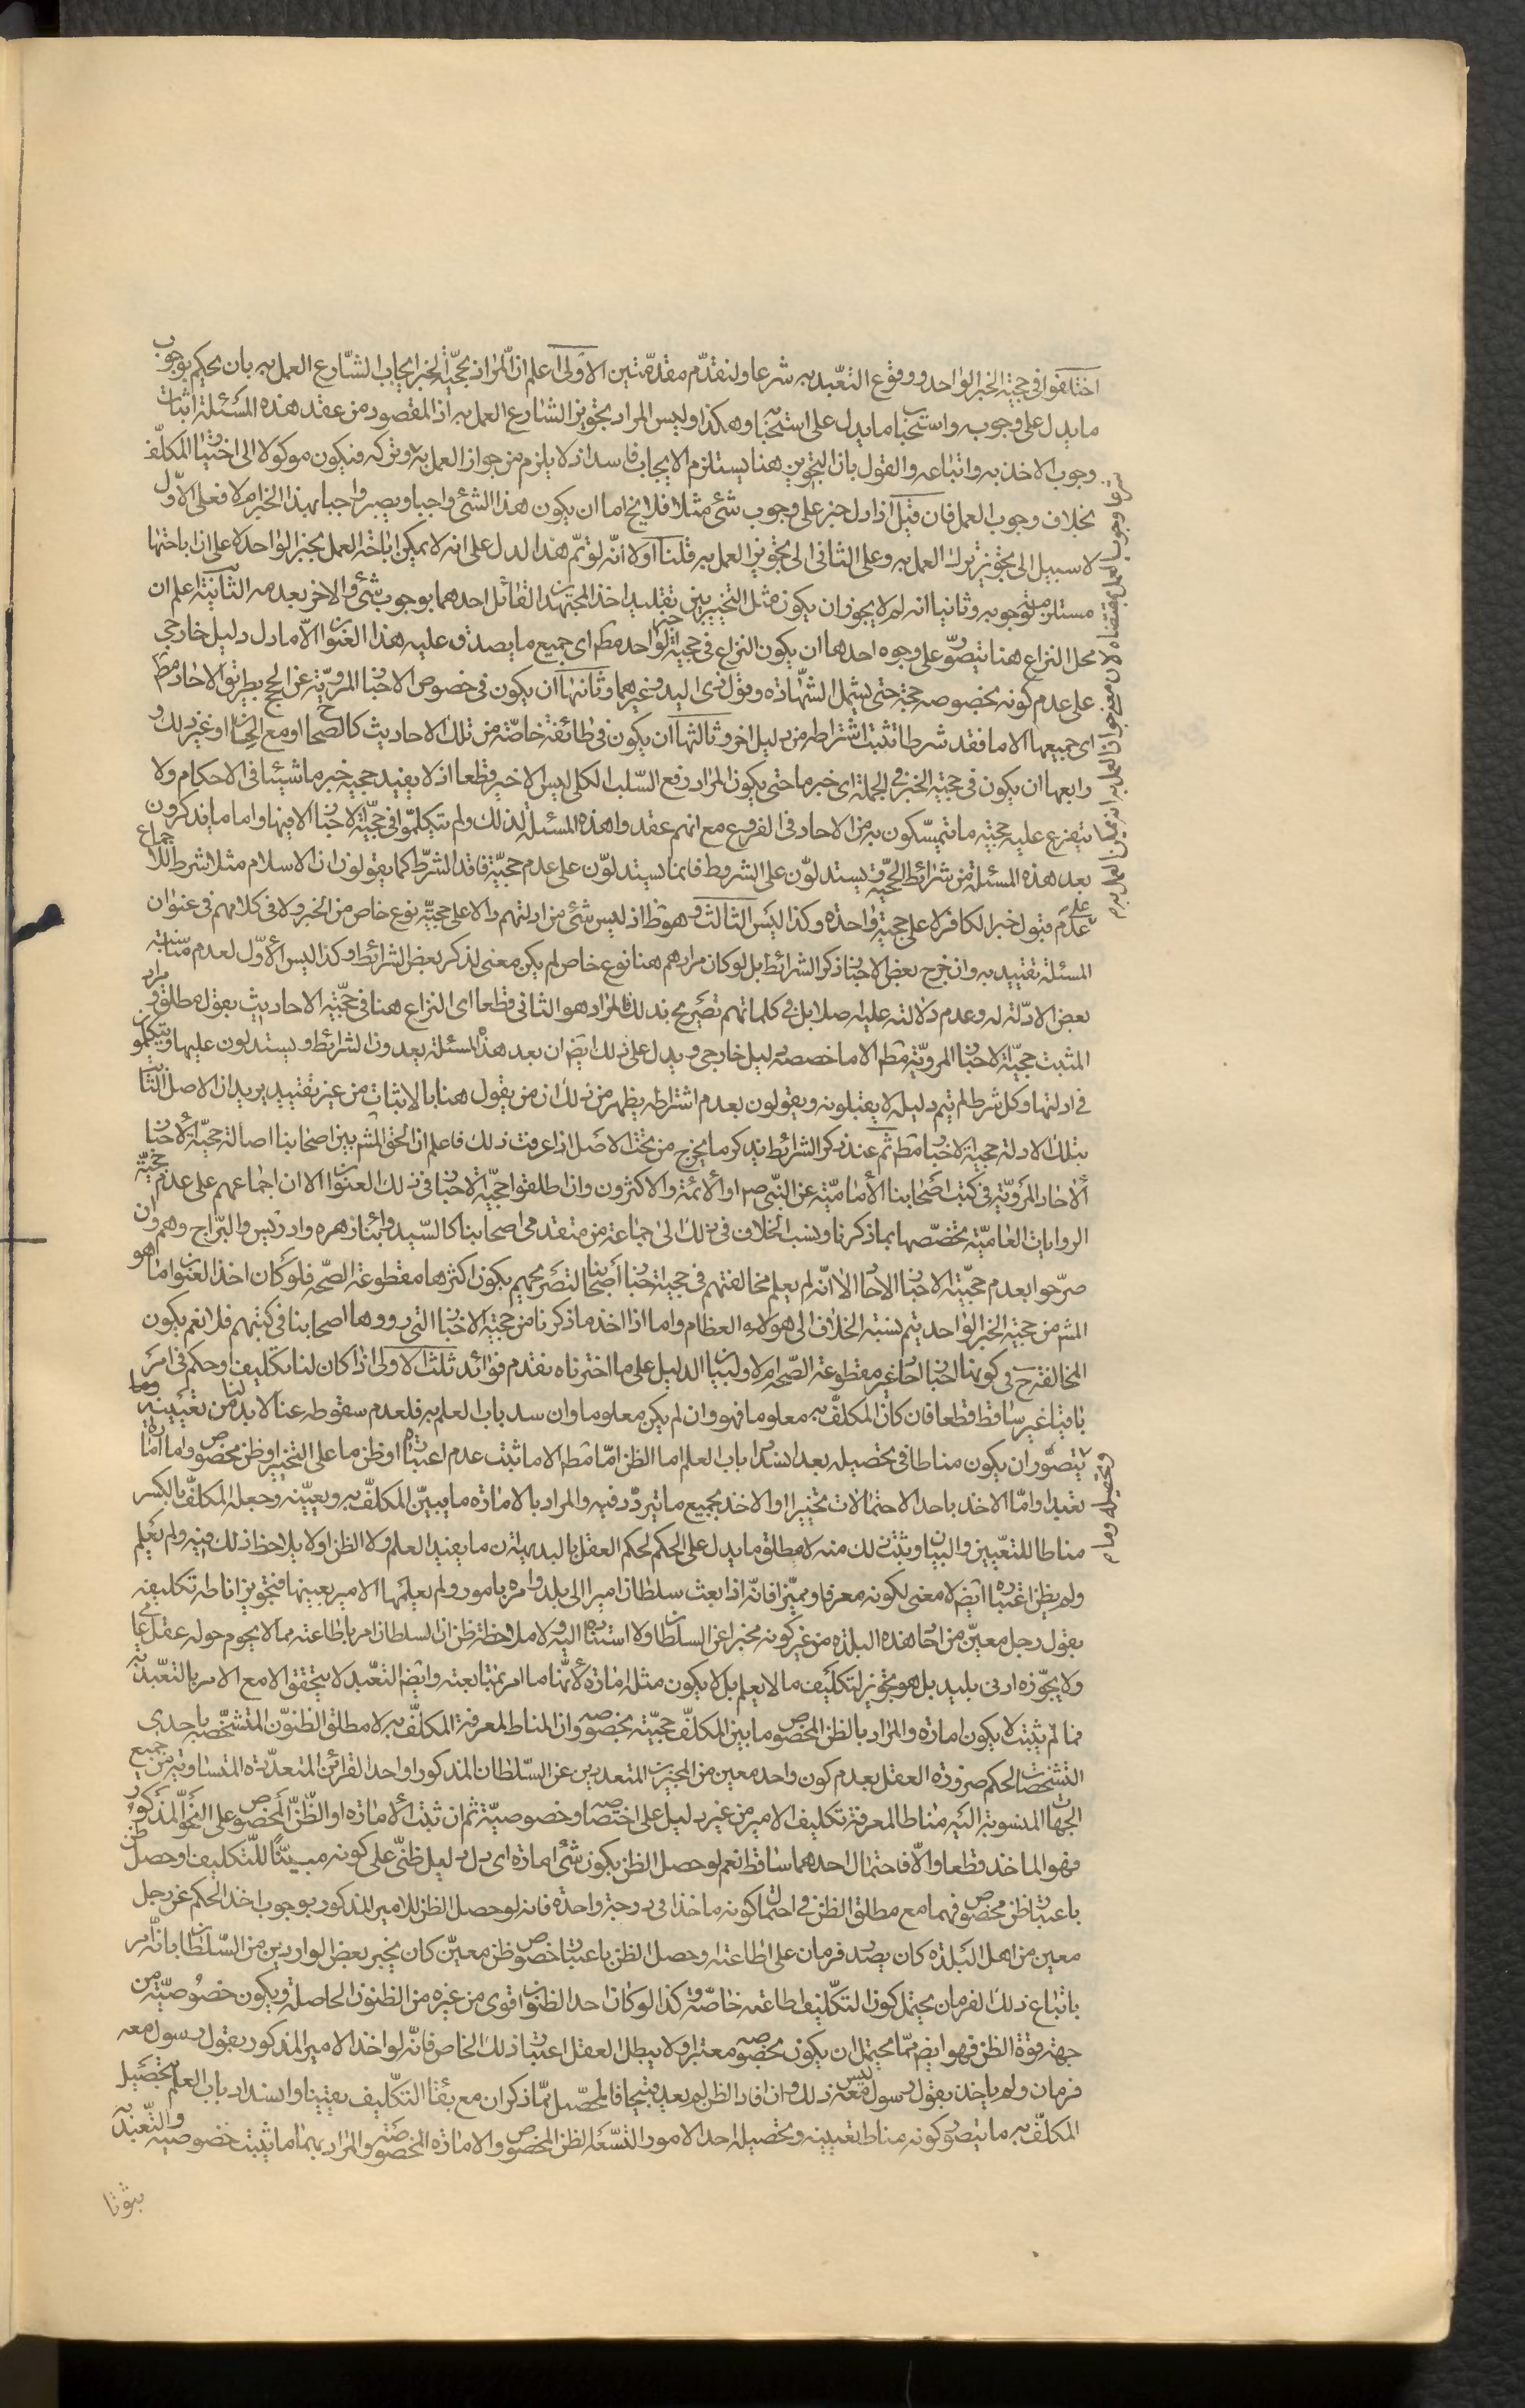 اختلفوا في حجية الخبر الواحد ووقوع التعبد به شرعا ولنقدّم مقدّمتين الاولى اعلم ان المراد بحجيّة الخبر ايجاب الشارع العمل به بان يحكم بوجوب
ما يدل على وجوبه واستحباب ما يدل على استحبابه وهكذا وليس المراد تجويز الشارع العمل به اذ المقصود من عقد هذه المسئلة اثبات
وجوب الاخذ به واتباعه والقول بان التجويز هنا يستلزم الايجاب فاسد اذ لا يلزم من جواز العمل به وتركه فيكون موكولا الى اختيار المكلّف
بخلاف وجوب العمل فان قيل اذا دل خبر على وجوب شئ مثلا فلا يخ اما ان يكون هذا الشئ واجبا ويصير واجبا بهذا الخبر ام لا فعلى الاوّل
لا سبيل الى تجويز ترك العمل به وعلى الثانى الى تجويز العمل به قلنا اولا انّه لو تمّ هذا لدل على انه لا يمكن اباحة العمل بخبر الواحد لا على ان اباحتها
مستلزمة لوجوبه وثانيا انه لم لا يجوز ان يكون مثل التخيير بين تقليد احد المجتهدين القائل احدهما بوجوب شئ والاخر بعدمه الثانية اعلم ان
محل النزاع هنا يتصوّر على وجوه احدها ان يكون النزاع في حجية خبر الواحد مط اى جميع ما يصدق عليه هذا العنوان الّا ما دل دليل خارجي
على عدم كونه بخصوصه حجة حتى يشمل الشهادة وقول ذى اليد وغيرهما وثانيها ان يكون في خصوص الاخبار المرويّة عن الحجج بطريق الاحاد مط
اى جميعها الا ما فقد شرطا تثبت اشتراطه من دليل اخر وثالثها ان يكون في طائفة خاصّة من تلك الاحاديث كالصحاح او مع الحسان او غير ذلك و
رابعها ان يكون في حجية الخبر في الجملة اى خبر ما حتى يكون المراد رفع السّلب الكلى ليس الاخير قطعا اذ لا يفيد حجية خبر ما شيئا في الاحكام ولا
يتفرع عليه حجية ما يتمسّكون به من الاحاد في الفروع مع انهم عقدوا هذه المسئلة لذلك ولم يتكلموا في حجيّة الاخبار الا فيها واما ما يذكرون
بعد هذه المسئلة من شرائط الحجّية ويستدلّون على الشروط فانما يستدلوّن على عدم حجيّة فاقد الشرط كما يقولون ان الاسلام مثلا شرط للاجماع
على عدم قبول خبر الكافر لا على حجية واحده وكذا ليس الثالث وهو ظ اذ ليس شئ من ادلتهم دالا على حجيّة نوع خاص من الخبر ولا في كلامهم في عنوان
المسئلة تقييد به وان خرج بعض الاخبار بذكر الشرائط بل لو كان مرادهم هنا نوع خاص لم يكن معنى لذكر بعض الشرائط وكذا ليس الأوّل لعدم مناسبة
بعض الادلّة له وعدم دلالته عليه اصلا بل في كلماتهم تصريح بذلك فالمراد هو الثانى قطعا اى النزاع هنا في حجّيّة الاحاديث بقول مطلق فمراد
المثبت حجيّة الاخبار المرويّة مط الا ما خصص بدليل خارجى ويدل على ذلك ايض ان بعد هذه المسئلة يعدون الشرائط ويستدلون عليها ويتكلمون
في ادلتها وكل شرط لم يتم دليله لا يقبلونه ويقولون بعدم اشتراطه يظهر من ذلك ان من يقول هنا بالاثبات من غير تقييد يريد ان الاصل الثابت
بتلك الادلة حجية الاخبار مط ثم عند ذكر الشرائط يذكر ما يخرج من تحت الاصل اذا عرفت ذلك فاعلم ان الحق المش بين اصحابنا اصالة حجيّة الاخبار
الاحاد المرويّة في كتب اصحابنا الاماميّة عن النبى ص او الائمة والاكثرون وان اطلقوا حجيّة الاخبار في ذلك العنوان الا ان اجماعهم على عدم حجية
الروايات العاميّة يخصّصها بما ذكرنا ونسب الخلاف في ذلك الى جماعة من متقدمى اصحابنا كالسّيد وابنا زهره وادريس والبرّاج وهم وان
صرّحوا بعدم حجيّة الاخبار الاحاد الا انّه لم يعلم مخالفتهم في حجية اخبار اصحابنا لتصريحهم بكون اكثرها مقطوعة الصّحه فلو كان اخذ العنوان ما هو
المش من حجية الخبر الواحد يتم نسبة الخلاف الى هولاء العظام واما اذا اخذ ما ذكرنا من حجية الاخبار التى رووها اصحابنا في كتبهم فلا نعم يكون
المخالفة ح في كونها اخبارا احادا غير مقطوعة الصّحه ام لا ولبيان الدليل على ما اخترناه نقدم فوائد ثلث الاولى اذا كان لنا تكليف او حكم في امر
باقيا غير ساقط قطعا فان كان المكلّف به معلوما فهو وان لم يكن معلوما وان سد باب العلم به فلعدم سقوطه عنا لا بد لنا من تعيينه وما
يتصوّر ان يكون مناطا في تحصيله بعد انسداد باب العلم اما الظن امّا مط الا ما ثبت عدم اعتباره او ظن ما على التخيير او ظن مخصوص واما امارة
تعبدا وامّا الاخذ باحد الاحتمالات تخييرا او الاخذ بجميع ما تردّد فيه والمراد بالامارة ما يبيّن المكلّف به ويعيّنه وجعله المكلّف بالكسر
مناطا للتعيين والبيان ويثبت ذلك منه لا مطلق ما يدل على الحكم لحكم العقل بالبديهة ان ما يفيد العلم ولا الظن اولا يلاحظ ذلك فيه ولم يعلم
ولم يظن اعتباره ايض لا معنى لكونه معرفا ومميّزا فانّه اذا بعث سلطان اميرا الى بلد وامره بامور ولم يعلمها الامير بعينها فتجويز اناطة تكليفه
بقول رجل معيّن من احاد هذه البلدة من غير كونه مخبرا عن السلطان ولا استناده اليه ولا ملاحظة ظن ان السلطان امر باطاعته مما لا يحوم حوله عقل عامى
ولا يجوّزه ادنى بليد بل هو تجويز لتكليف ما لا يعلم بل لا يكون مثله امارة لأنّها ما امر بمتابعته وايض التعبّد لا يتحقق الا مع الامر بالتعبّد به
فما لم يثبت لا يكون امارة والمراد بالظن المخصوص ما بين المكلّف حجيّته بخصوصه وان المناط لمعرفة المكلّف به لا مطلق الظنون المتشخّصه باحدى
التشخصات لحكم ضرورة العقل بعدم كون واحد معين من المخبرين المتعددين عن السّلطان المذكور او احد القرائن المتعدّدة المتساوية من جميع
الجهات المنسوبة اليه مناطا لمعرفة تكليف الامير من غير دليل على اختصاصه وخصوصيّة ثم ان ثبت الامارة او الظنّ المخصوص على النحو المذكور
فهو الماخذ قطعا والّا فاحتمال احدهما ساقط نعم لو حصل الظن بكون شئ امارة اى دل دليل ظنّى على كونه مبيّنا للتكليف او حصل ظن
باعتبار ظن مخصوص فهما مع مطلق الظن في احتمال كونه ماخذا في درجة واحدة فانه لو حصل الظن للامير المذكور بوجوب اخذ الحكم عن رجل
معين من اهل البلدة كان بصدد فرمان على اطاعته او حصل الظن باعتبار خصوص ظن معيّن كان يخبر بعض الواردين من السّلطان بانّه امر
باتباع ذلك الفرمان يحتمل كون التكليف اطاعته خاصّة وكذا لو كان احد الظنون اقوى من غيره من الظنون الحاصلة ويكون خصوصيّته من
جهة قوّة الظن فهو ايض ممّا يحتمل ان يكون بخصوصه معتبرا ولا يبطل العقل اعتبار ذلك الخاص فانّه لو اخذ الامير المذكور بقول رسول معه
فرمان ولم ياخذ بقول رسول ليس معه ذلك وان افاد الظن لم يعد قبيحا فالمحصّل ممّا ذكر ان مع بقاء التكليف يقينا وانسداد باب العلم بتحصيل
المكلّف به ما يتصوّر كونه مناطا لتعيينه وتحصيله احد الامور التسّعة الظن المخصوص والامارة المخصوصة والمراد بهما ما يثبت خصوصيته والتعبد به
بثوتا